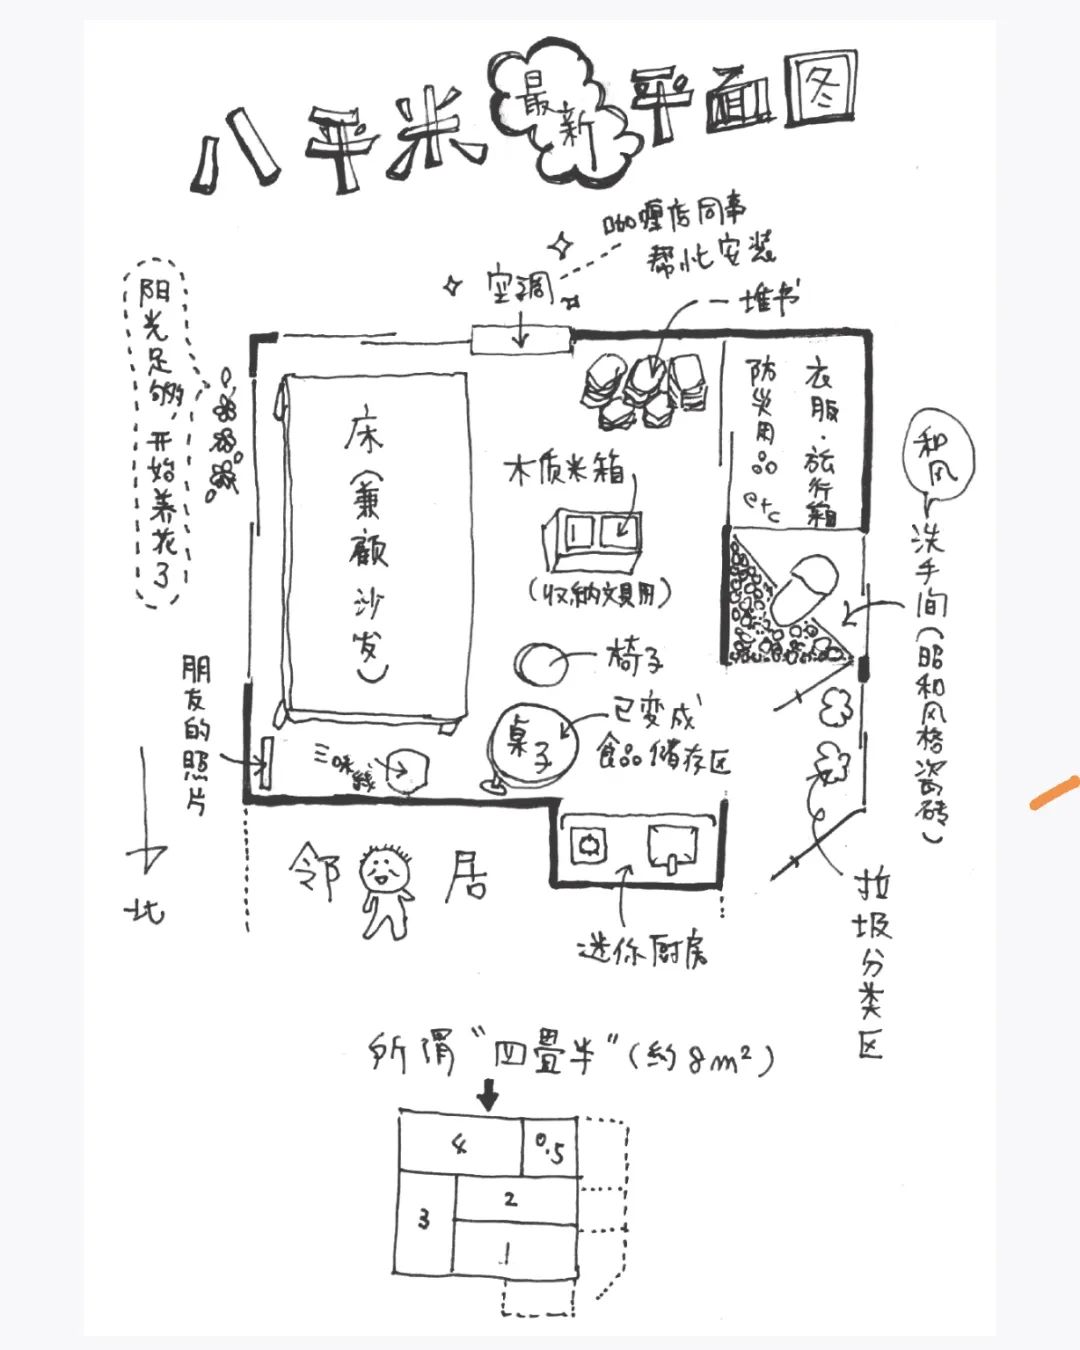 八平米最新平面图
咖喱店同事
帮忙安装
空调
一堆书
阳光足够，开始养花了
床（兼顾沙发）
防灾用品 etc
衣服·旅行箱
木质米箱
（收纳文具用）
和风
洗手间（昭和风格瓷砖）
椅子
桌子
已变成
食品储存区
朋友的照片
三味线
北
邻居
迷你厨房
垃圾分类区
所谓“四畳半”（約8m²）
4
0.5
3
2
1